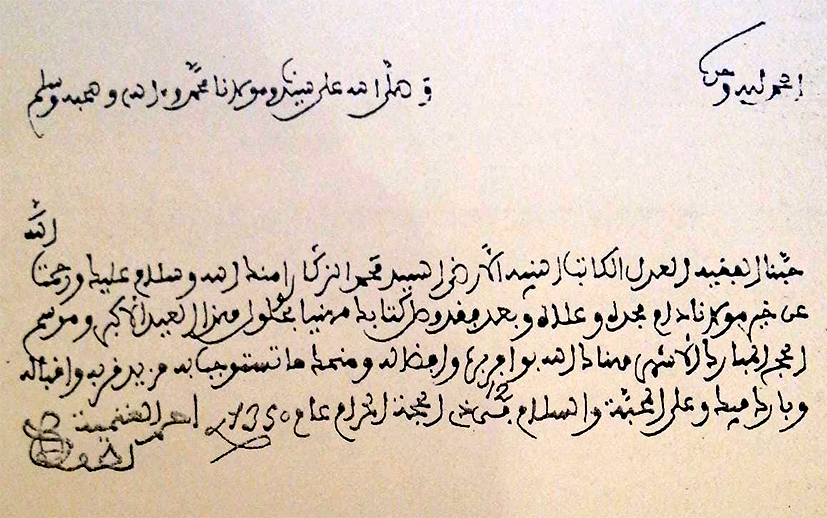 الحمد لله وحده
وصلى الله على سيدنا ومولانا محمد وءاله وصحبه وسلم
محبنا الفقيه العدل الكاتب النبيه الأرضى السيد محمد الزكاري أمنك الله وسلام عليك ورحمة الله
عن خير مولانا دام مجده وعلاه وبعد فقد وصل كتابك مهنيا بحلول هذا العيد الأكبر وموسم
الحج المبارك الأشهر هناك الله بوافر بره وإفضاله ومنحك ما تستوجب به مزيد قربه وإقباله
وبارك فيك وعلى المحبة والسلام في 12 حجة الحرام عام 1350